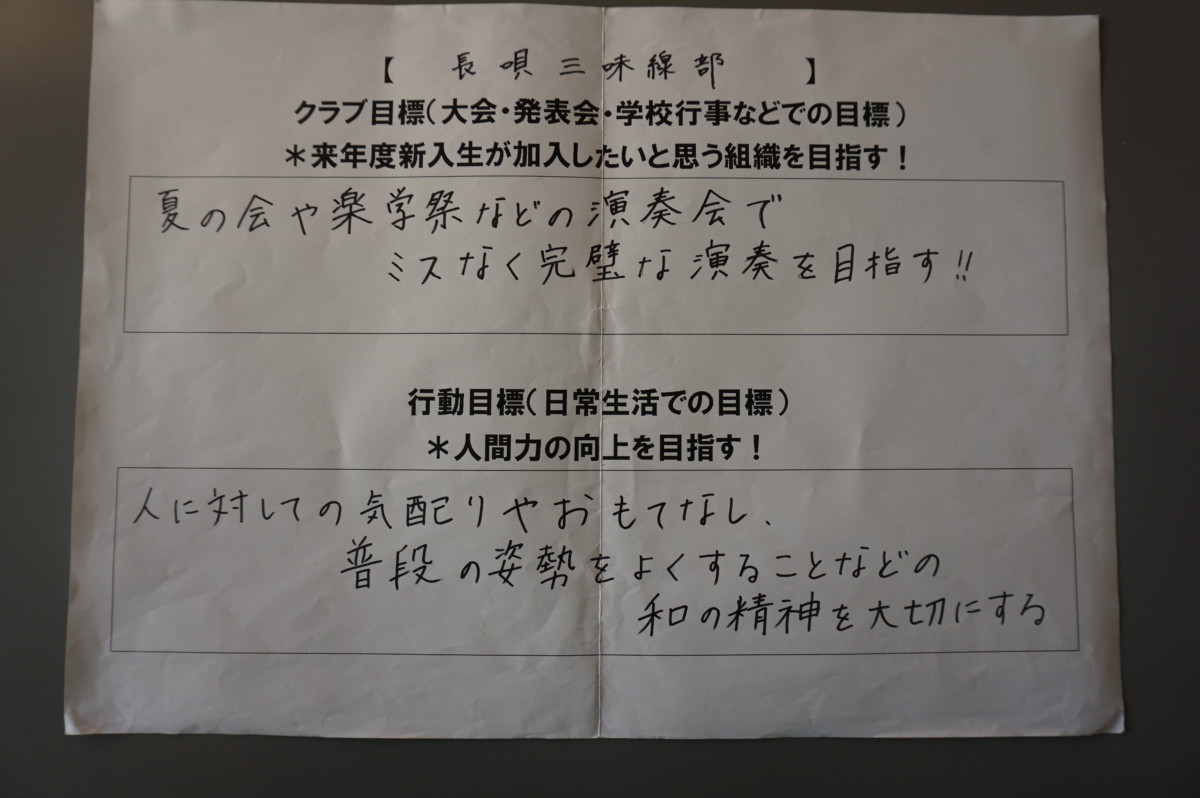 【 長唄三味線部 】
クラブ目標(大会・発表会・学校行事などでの目標)
＊来年度新入生が加入したいと思う組織を目指す！
夏の会や楽学祭などの演奏会で
ミスなく完璧な演奏を目指す!!
行動目標(日常生活での目標)
＊人間力の向上を目指す！
人に対しての気配りやおもてなし、
普段の姿勢をよくすることなどの
和の精神を大切にする